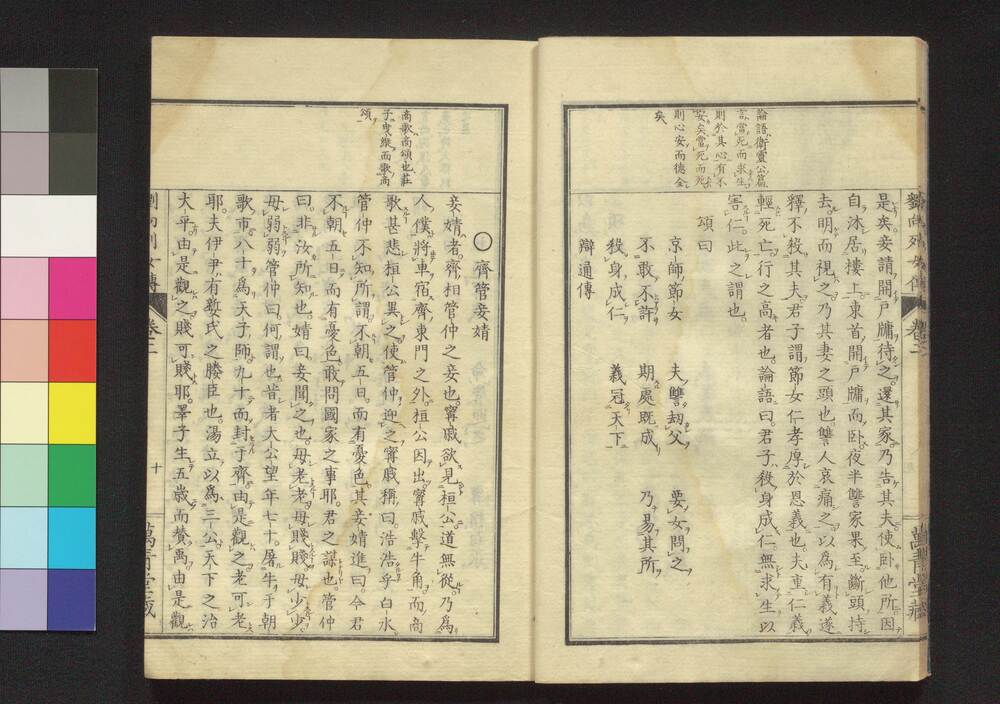 論語衛靈公篇
言當死而求生
則於其心有不
安矣當死而死
則心安而德全
矣
是矣妾請開戶牖待之還其家乃告其夫使臥他所因
自沐居樓上東首開戶牖而臥夜半讐家果至斷頭持
去明而視之乃其妻之頭也讐人哀痛之以為有義遂
釋不殺其夫君子謂節女仁孝厚於恩義也夫重仁義
輕死亡行之高者也論語曰君子殺身成仁無求生以
害仁此之謂也
頌曰
京師節女 夫讐劫父 要女問之
不敢不許 期處既成 乃易其所
殺身成仁 義冠天下
辯通傳
商歌商頌也莊
子曳縱而歌商
頌
○齊管妾婧
妾婧者齊相管仲之妾也甯戚欲見桓公道無從乃為
人僕將車宿齊東門之外桓公因出甯戚擊牛角而商
歌甚悲桓公異之使管仲迎之甯戚稱曰浩浩乎白水
管仲不知所謂不朝五日而有憂色其妾婧進曰今君
不朝五日而有憂色敢問國家之事耶君之謀也管仲
曰非汝所知也婧曰妾聞之也毋老老毋賤賤毋少少
毋弱弱管仲曰何謂也昔者大公望年七十屠牛于朝
歌市八十為天子師九十而封于齊由是觀之老可老
耶夫伊尹有㜪氏之媵臣也湯立以為三公天下之治
大平由是觀之賤可賤耶睪子生五歲而贊禹由是觀
卷之二
十